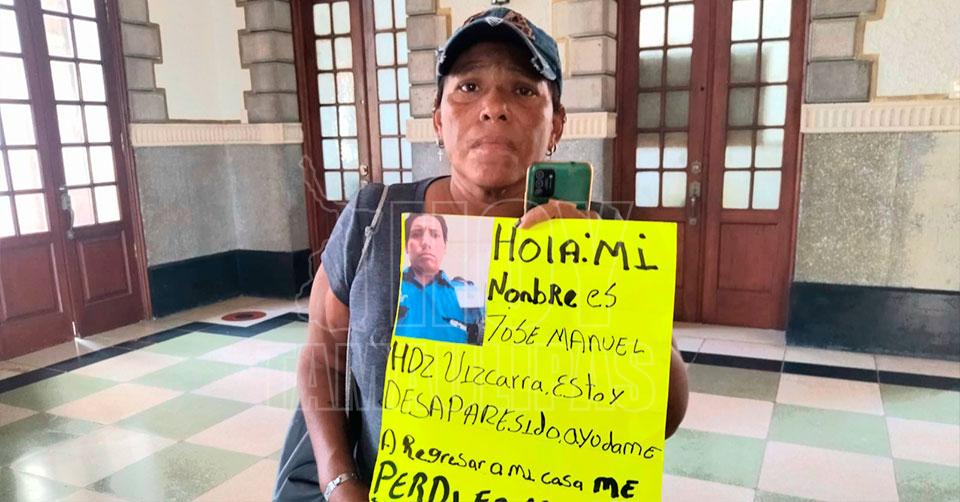 HOLA: Mi
NonbRe es
JOSE MANUEL
HDZ Vizcarra. Estoy
DESAPARESIDO, ayudame
A Regresar a mi casa ME
HOY
TAMAULIPAS